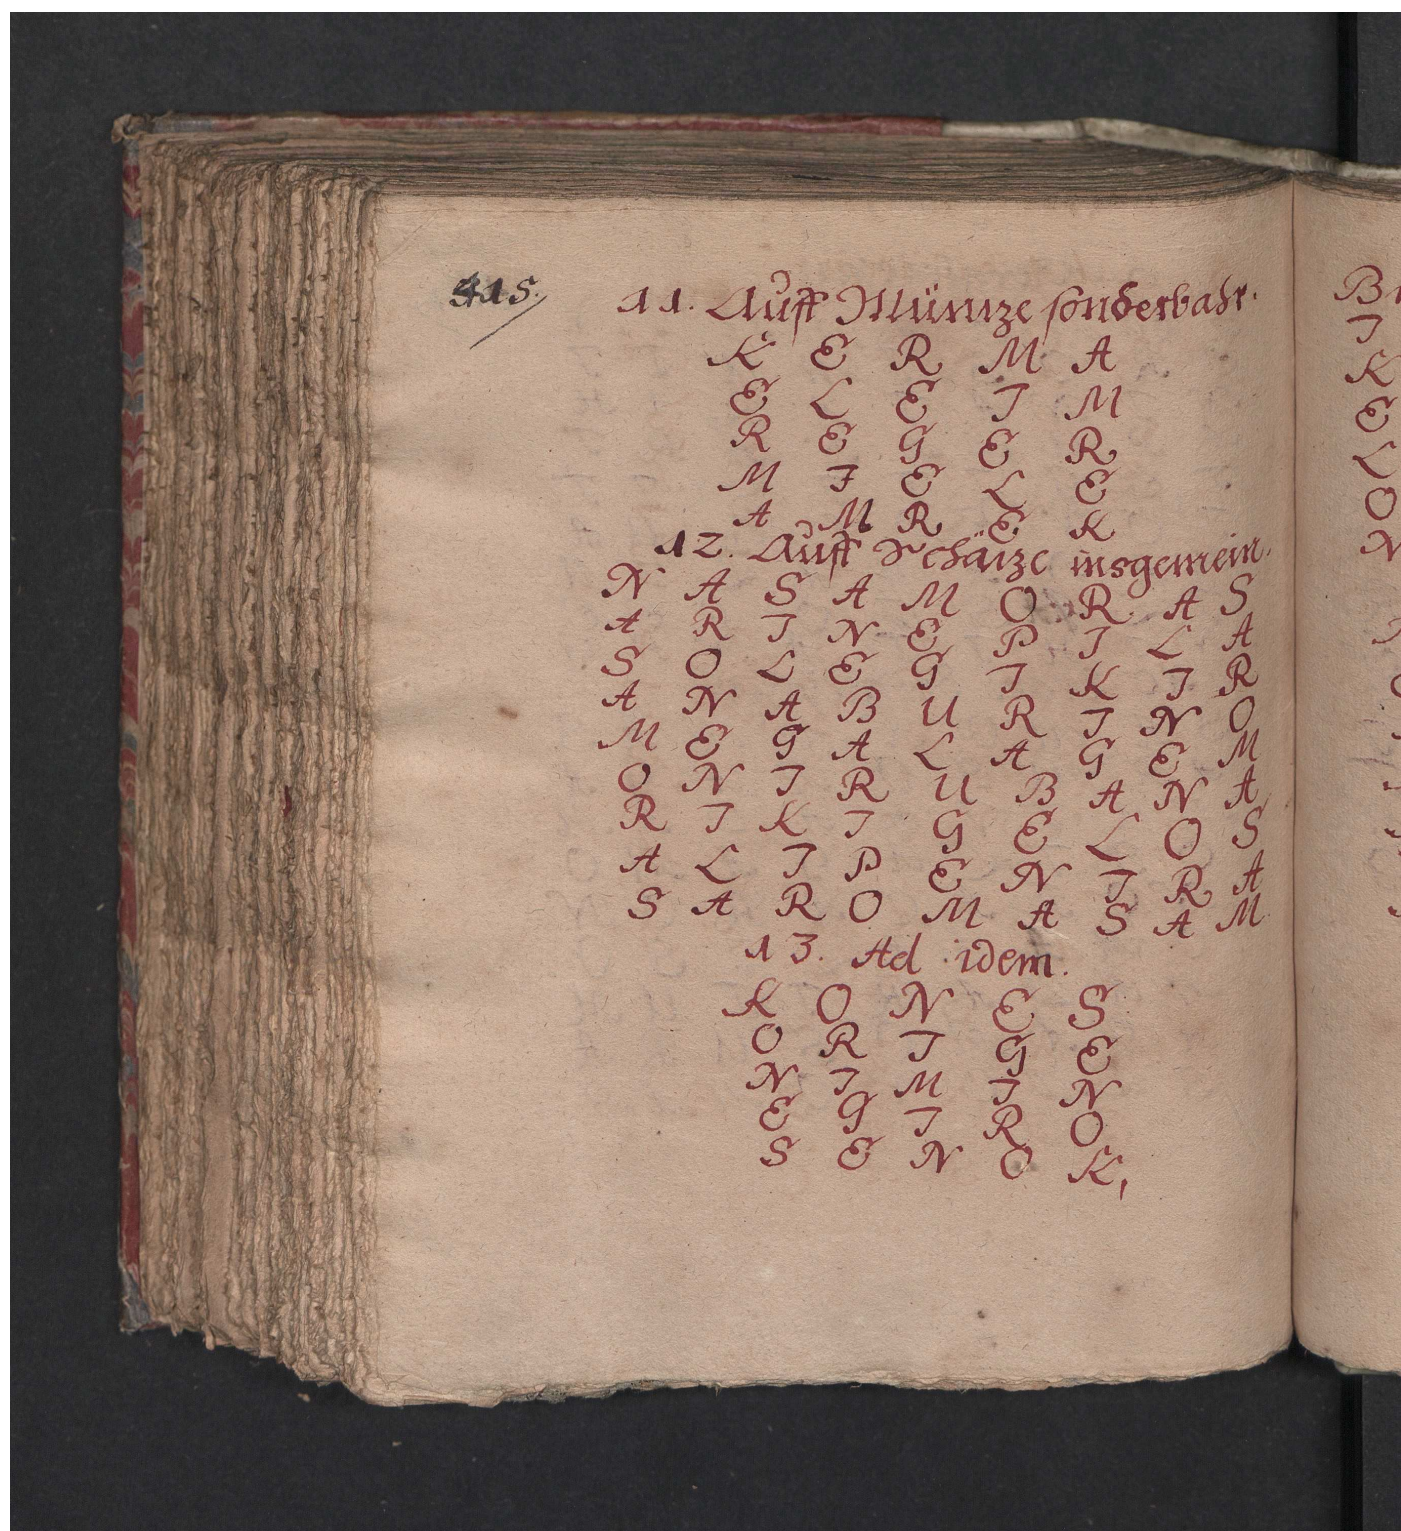 415.
11. Auff Müntze sonderbahr.
K E R M A
E L E I M
R E G E R
M I E L E
A M R E K
12. Auff Schätze insgemein.
N A S A M O R A S
A R I N E P I L A
S O L E G I K I R
A N A B U R I N O
M E G A L A G E M
O N I R U B A N A
R I K I G E L O S
A L I P E N I R A
S A R O M A S A M
13. Ad idem.
K O N E S
O R I G E
N I M I N
E G I R O
S E N O K,
I
K
E
L
O
N